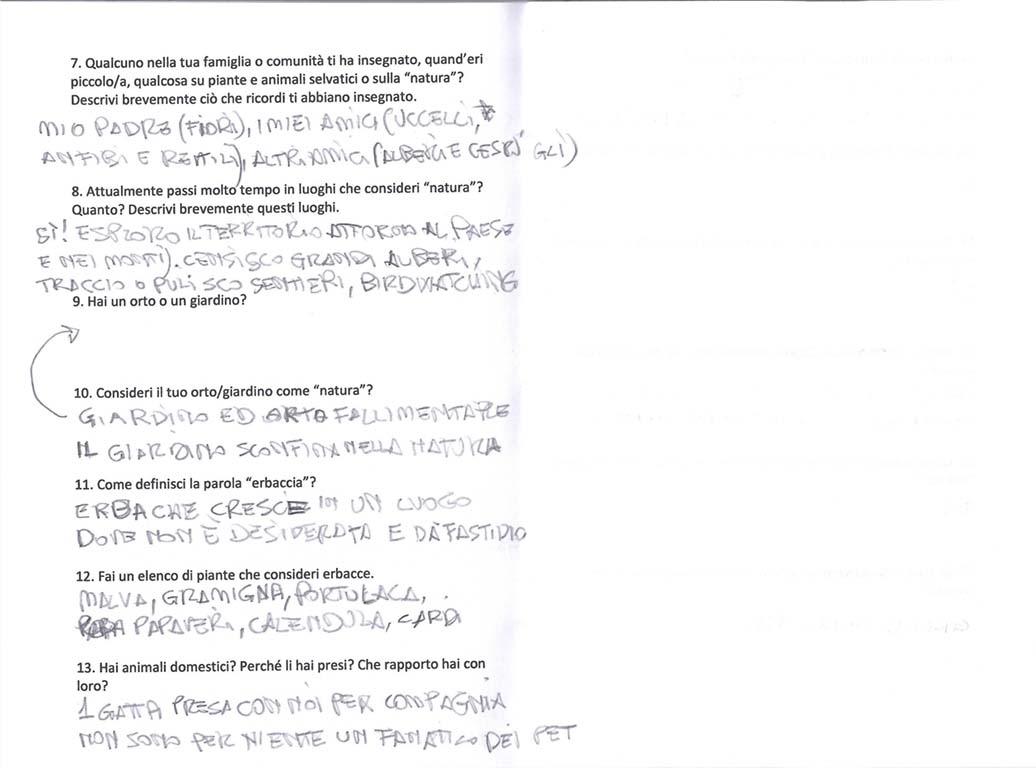 7. Qualcuno nella tua famiglia o comunità ti ha insegnato, quand'eri
piccolo/a, qualcosa su piante e animali selvatici o sulla "natura"?
Descrivi brevemente ciò che ricordi ti abbiano insegnato.
MIO PADRE (FIORI), I MIEI AMICI (UCCELLI,*
ANFIBI E RETTILI), ALTRI AMICI (ALBERI E CESPUGLI)
8. Attualmente passi molto tempo in luoghi che consideri "natura"?
Quanto? Descrivi brevemente questi luoghi.
SÌ! ESPLORO IL TERRITORIO ATTORNO AL PAESE
E NEI MONTI. CENSISCO GRANDI ALBERI,
TRACCIO O PULISCO SENTIERI, BIRDWATCHING
9. Hai un orto o un giardino?
10. Consideri il tuo orto/giardino come "natura"?
GIARDINO ED ORTO FALLIMENTARE
IL GIARDINO SCONFINA NELLA NATURA
11. Come definisci la parola "erbaccia"?
ERBA CHE CRESCE IN UN LUOGO
DOVE NON È DESIDERATA E DÀ FASTIDIO
12. Fai un elenco di piante che consideri erbacce.
MALVA, GRAMIGNA, PORTULACA,
PAPAVERI, CALENDULA, CARDI
13. Hai animali domestici? Perché li hai presi? Che rapporto hai con
loro?
1 GATTA PRESA CON NOI PER COMPAGNIA
NON SONO PER NIENTE UN FANATICO DEI PET